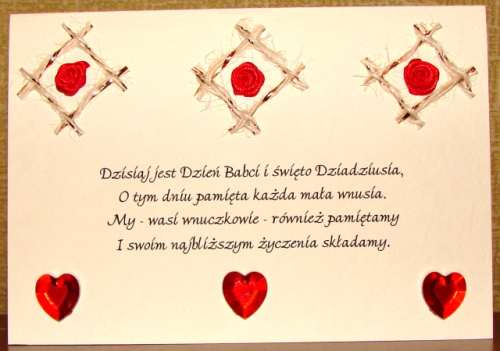 Dzisiaj jest Dzień Babci i święto Dziadziusia,
O tym dniu pamięta każda mała wnusia.
My - wasi wnuczkowie - również pamiętamy
I swoim najbliższym życzenia składamy.